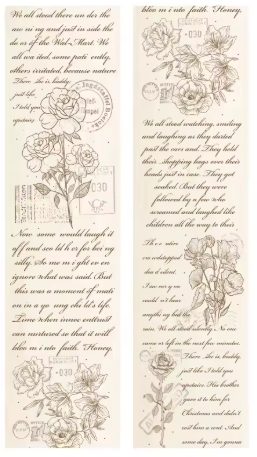 We all stood there un der the
aw ni ng and just in side the
do or of the Wal-Mart. We
all wa ited, some pati ently,
others irritated, because nature
There she is, buddy,
just like
I told you
upstairs
030
Now some would laugh it
off and sco ld h er for bei ng
silly. So me m i ght ev en
ignore what was said. But
this was a moment of mati
on in a yo ung chi ld's life.
Time when innoc ent trust
can nurtured so that it will
bloo m i nto faith. Honey,
bloo m i nto faith. Honey,
030
We all stood watching, smiling
and laughing as they darted
past the cars and. They held
their shopping bags over their
heads just in case. They got
soaked. But they were
followed by a few who
screamed and laughed like
children all the way to their
anything but the
rain. We all stood silently. No one
came or left in the next few minutes.
There she is, buddy,
just like I told you
upstairs. His brother
gave it to him for
Christmas and didn't
cost him a cent. And
some day, I'm gonna